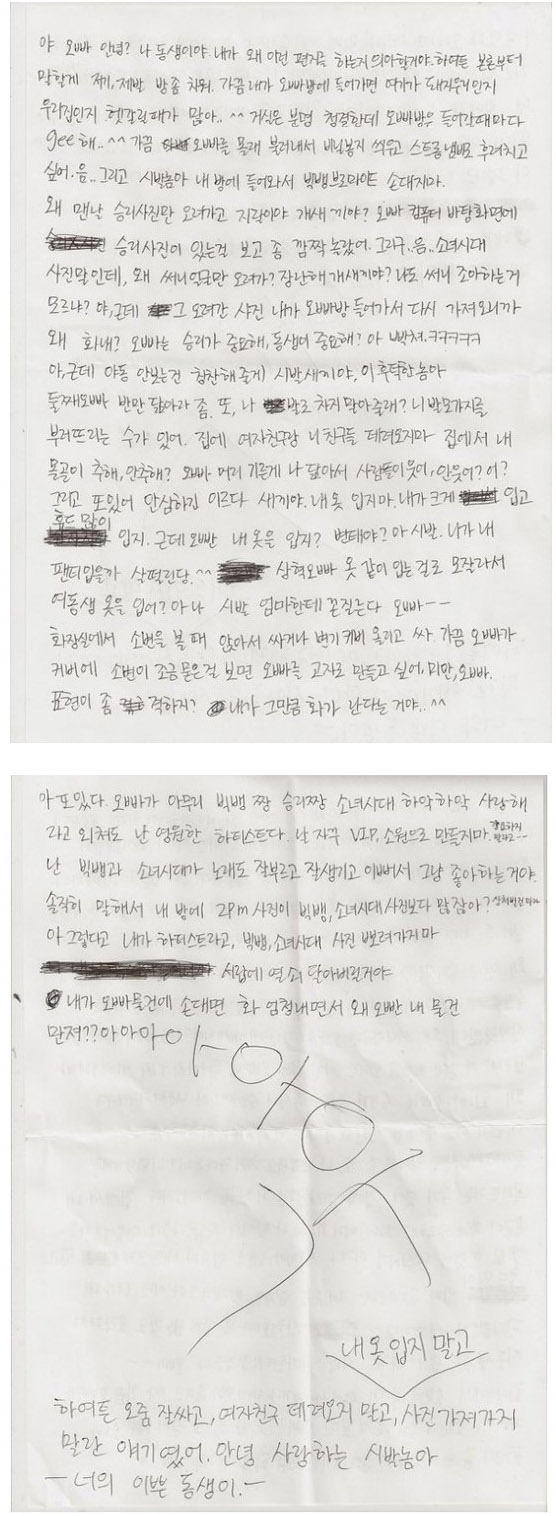 야 오빠 안녕? 나 동생이야. 내가 왜 이런 편지를 하는지 의아할거야. 하여튼 본론부터
말할게 제기, 제발 방좀 치워. 가끔 내가 오빠방에 들어가면 여기가 돼지우리인지
우리집인지 헷갈릴때가 많아.. ^^ 거실은 분명 청결한데 오빠방은 들어갈때마다
gee해..^^ 가끔 오빠를 몰래 불러내서 비닐봉지 씌우고 스트롱냄비로 후려치고
싶어. 음.. 그리고 시박놈아 내 방에 들어와서 빅뱅브로마이드 손대지마.
왜 맨날 승리사진만 오려가고 지랄이야 개새끼야? 오빠 컴퓨터 바탕화면에
승리사진이 있는걸 보고 좀 깜짝 놀랐어. 그리구..음..소녀시대
사진말인데, 왜 써니얼굴만 오려가? 장난해 개새끼야? 나도 써니 조아하는거
모르냐? 야, 근데 그 오려간 사진 내가 오빠방 들어가서 다시 가져오니까
왜 화내? 오빠는 승리가 중요해, 동생이 중요해? 아 빡쳐.ㅋㅋㅋㅋㅋ
아, 근데 야동 안보는건 칭찬해 줄게 시발새끼야. 이 후덕한 놈아
둘째오빠 반만 닮아라 좀. 또, 나 발로 차지 말아줄래? 니 발모가지를
부러뜨리는 수가 있어. 집에 여자친구랑 니 친구들 데려오지마 집에서 내
몰골이 추해, 안추해? 오빠 머리 기른게 나 닮아서 사람들이 웃어, 안웃어? 어?
그리고 또있어 안심하긴 이르다 새끼야. 내 옷 입지마. 내가 크게 입고
후드 많이
입지. 근데 오빤 내 옷을 입지? 변태야? 아 시발. 니가 내
팬티입을까 살떨린당.^^ 상혁오빠 옷 같이 입는걸로 모잘라서
여동생 옷을 입어? 아 나 시발 엄마한테 꼰질는다 오빠--
화장실에서 소변을 볼 때 앉아서 싸거나 변기커버 올리고 싸. 가끔 오빠가
커버에 소변이 조금 묻은걸 보면 오빠를 고자로 만들고 싶어. 미안, 오빠.
표현이 좀 격하지? 내가 그만큼 화가 난다는 거야..^^
아 또있다. 오빠가 아무리 빅뱅 짱 승리짱 소녀시대 하악하악 사랑해
라고 외쳐도 난 영원한 하티스트다. 날 자꾸 V.I.P, 소원으로 만들지마.
난 빅뱅과 소녀시대가 노래도 잘부르고 잘생기고 이뻐서 그냥 좋아하는거야.
솔직히 말해서 내 방에 2pm 사진이 빅뱅, 소녀시대 사진보다 많잖아?
아 그렇다고 내가 하티스트라고, 빅뱅, 소녀시대 사진 뽀려가지마
서랍에 열쇠 달아버릴거야
내가 오빠물건에 손대면 화 엄청내면서 왜 오빤 내 물건
만져??아아아아
아
악
내 옷 입지 말고
하여튼 오줌 잘싸고, 여자친구 데려오지 말고, 사진 가져가지
말란 얘기였어. 안녕 사랑하는 시박놈아
- 너의 이쁜 동생이.-